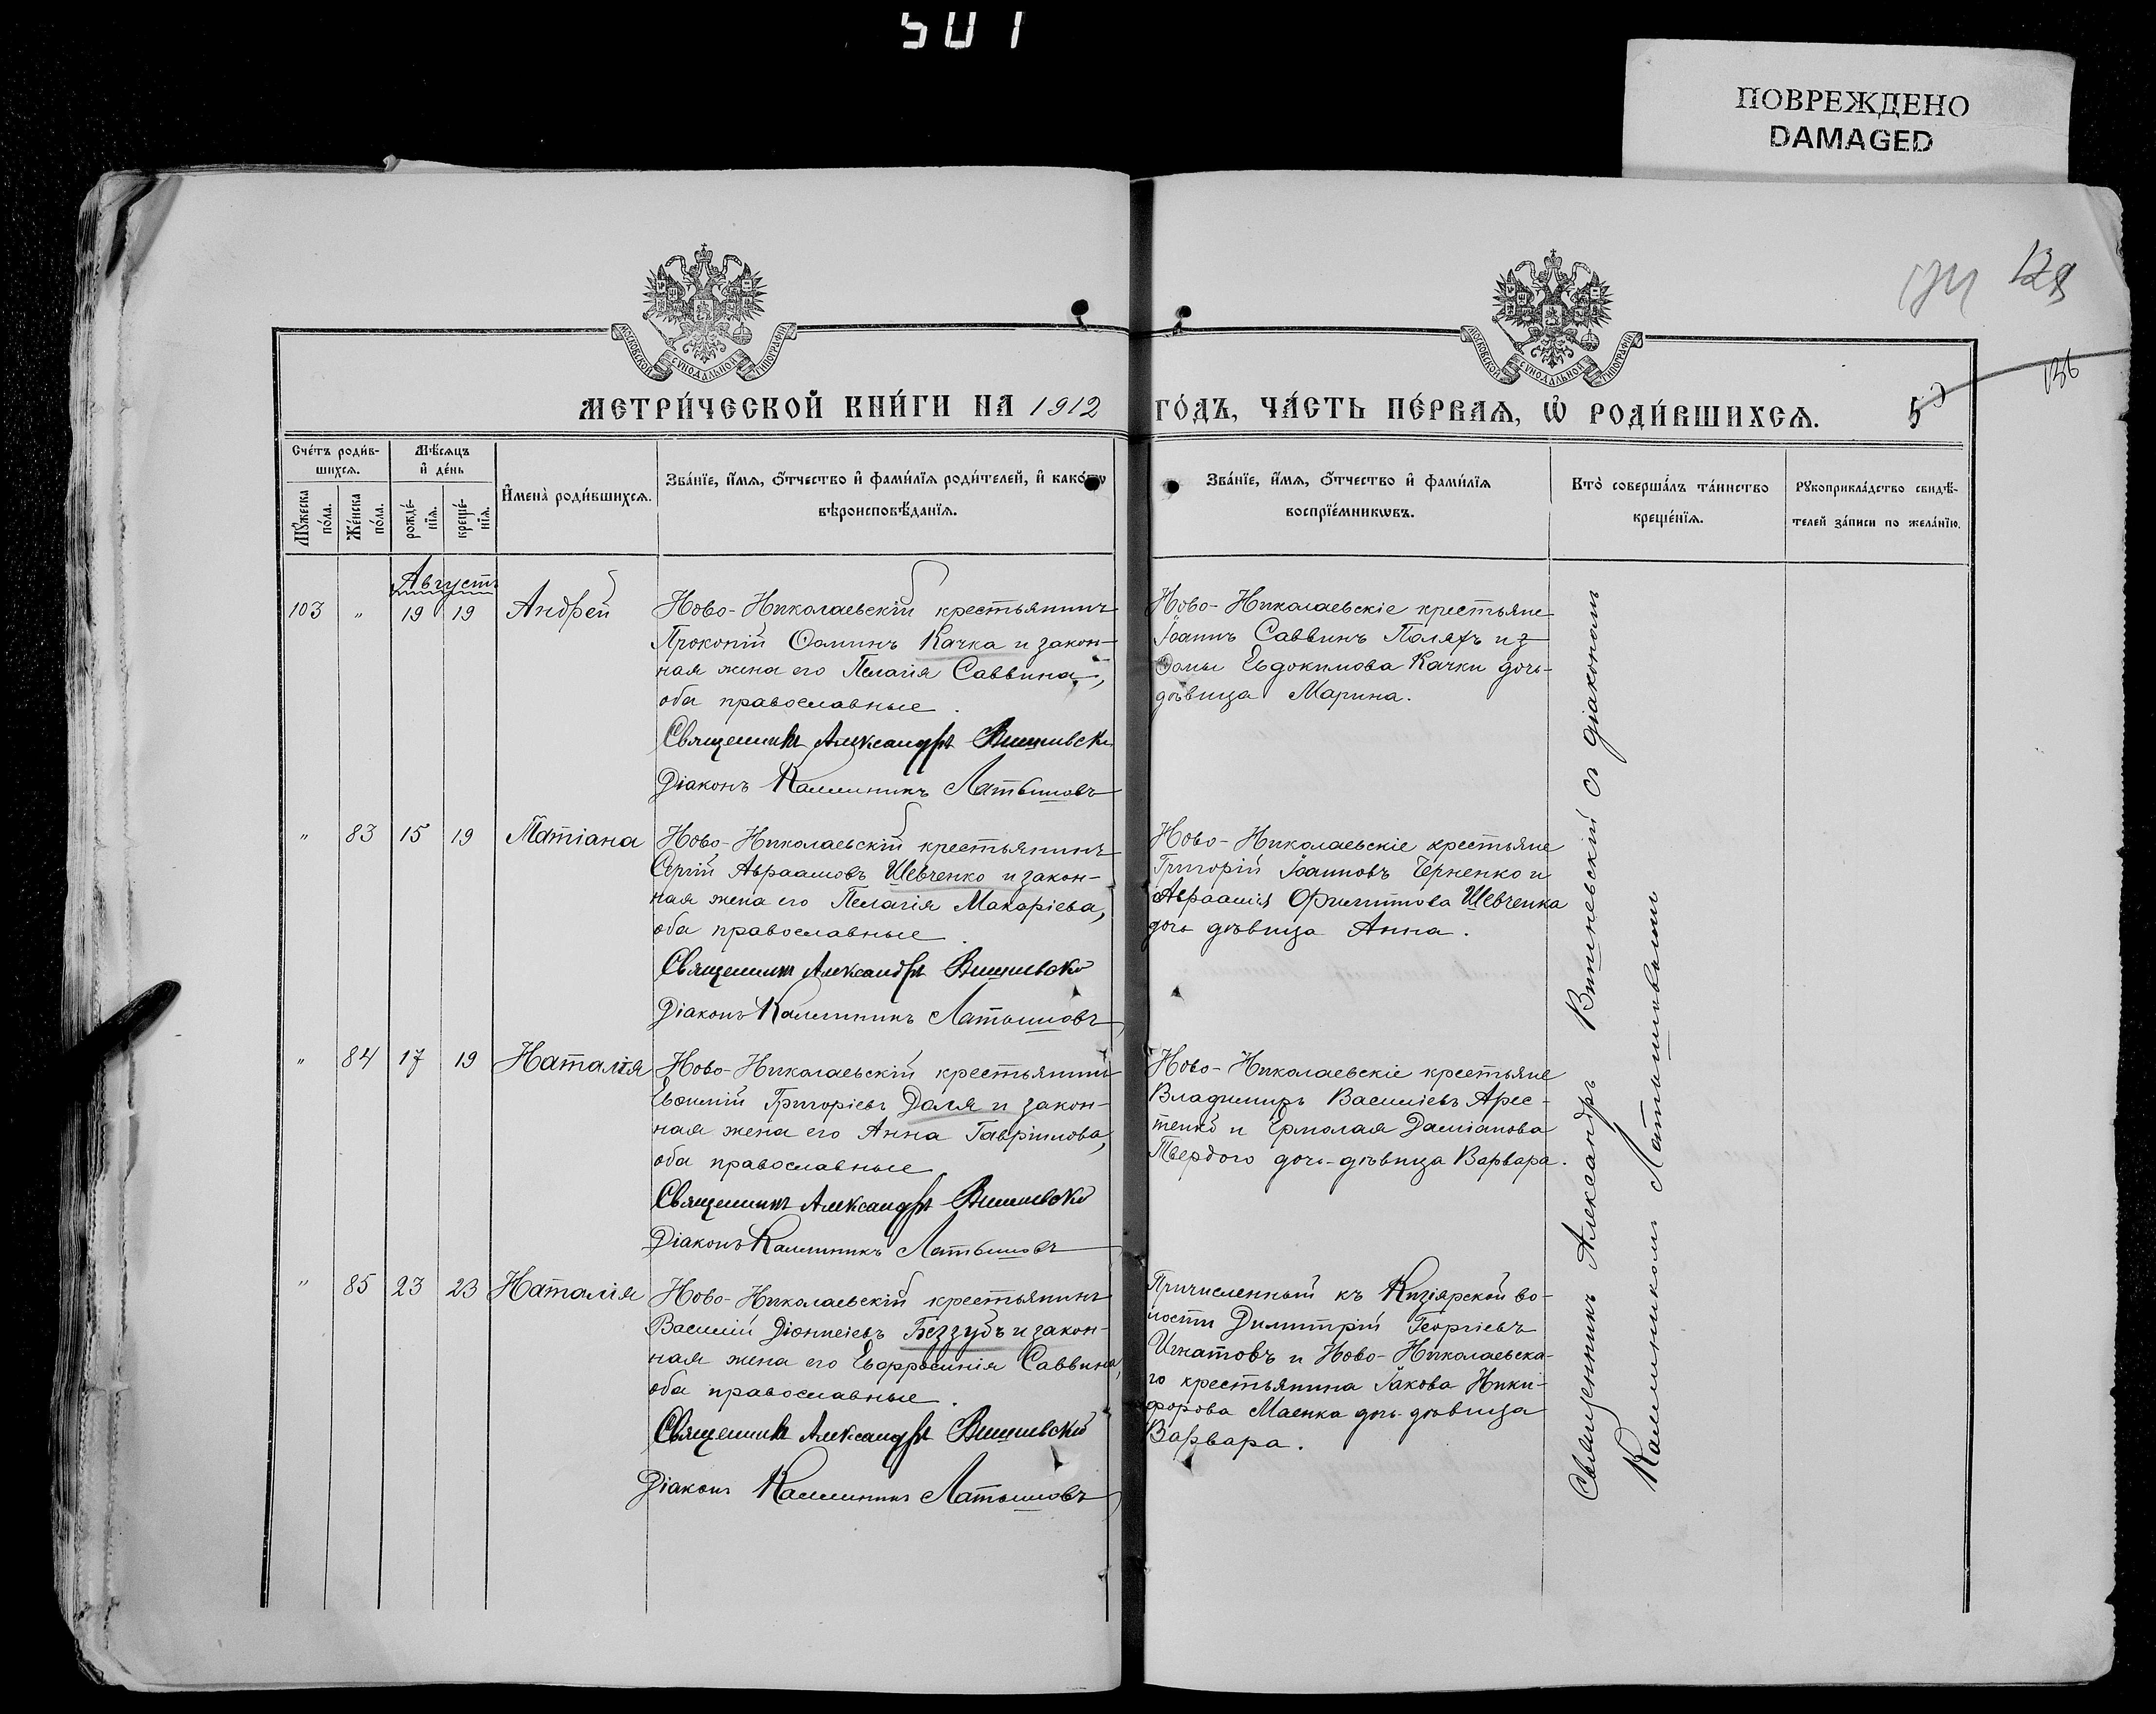 501
ПОВРЕЖДЕНО
DAMAGED
129
136
МОСКОВСКОЙ СѴНОДАЛЬНОЙ ТИПОГРАФІИ
МОСКОВСКОЙ СѴНОДАЛЬНОЙ ТИПОГРАФІИ
МЕТРИ́ЧЕСКОЙ КНИ́ГИ НА 1912
ГО́ДЪ, ЧА́СТЬ ПЕ́РВАЯ, Ѡ҆ РОДИ́ВШИХСЯ.
Счéтъ роди́в-
шихся.
Мꙋ́жеска
по́ла.
Же́нска
по́ла.
Мѣ́сяцъ
и҆ де́нь
рожде́-
нїя.
креще́-
нїя.
И҆мена̀ роди́вшихся.
Зва́нїе, и҆́мя, ѻ҆́тчество и҆ фами́лїя роди́телей, и҆ како́гѡ
вѣроисповѣ́данїя.
Зва́нїе, и҆́мя, ѻ҆́тчество и҆ фами́лїя
воспрїе́мникѡвъ.
Кто̀ соверша́лъ та́инство
креще́нїя.
Рꙋкоприкла́дство свидѣ́-
телей за́писи по жела́нїю.
Августъ
103 " 19 19 Андрей
Ново-Николаевскій крестьянинъ
Прокопій Ѳоминъ Качка и закон-
ная жена его Пелагія Саввина,
оба православные.
Священникъ Александръ Вишневскій
Діаконъ Каллиникъ Латышовъ
Ново-Николаевскіе крестьяне
Іоаннъ Саввинъ Поляхъ и з
Ѳомы Евдокимова Качки дочь-
дѣвица Марина.
" 83 15 19 Татіана
Ново-Николаевскій крестьянинъ
Сергій Авраамовъ Шевченко и закон-
ная жена его Пелагія Макаріева,
оба православные.
Священникъ Александръ Вишневскій
Діаконъ Каллиникъ Латышовъ
Ново-Николаевскіе крестьяне
Григорій Іоанновъ Черненко и
Авраамія Филиппова Шевченка
дочь дѣвица Анна.
" 84 17 19 Наталія
Ново-Николаевскій крестьянинъ
Евѳимій Григоріевъ Доля и закон-
ная жена его Анна Гавріилова,
оба православные
Священникъ Александръ Вишневскій
Діаконъ Каллиникъ Латышовъ
Ново-Николаевскіе крестьяне
Владимиръ Василіевъ Арес-
тенко и Ермолая Даміанова
Твердого дочь-дѣвица Варвара.
" 85 23 23 Наталія
Ново-Николаевскій крестьянинъ
Василій Діонисіевъ Беззубъ и закон-
ная жена его Евфросинія Саввина,
оба православные.
Священникъ Александръ Вишневскій
Діаконъ Каллиникъ Латышовъ
Причисленный къ Кизіярской во-
лости Димитрій Георгіевъ
Игнатовъ и Ново-Николаевска-
го крестьянина Іакова Ники-
форова Маенка дочь-дѣвица
Варвара.
Священникъ Александръ Вишневскій съ діакономъ
Каллиникомъ Латышовымъ